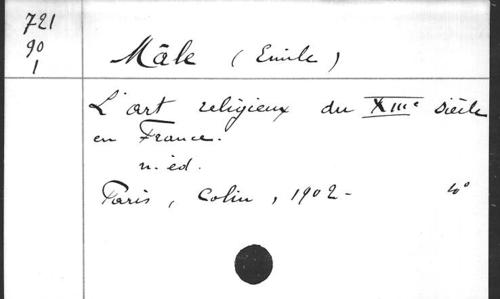 721
90
1
Mâle (Emile)
L'art religieux du XIIIe siècle
en France.
n. éd.
Paris, Colin, 1902 -
4°